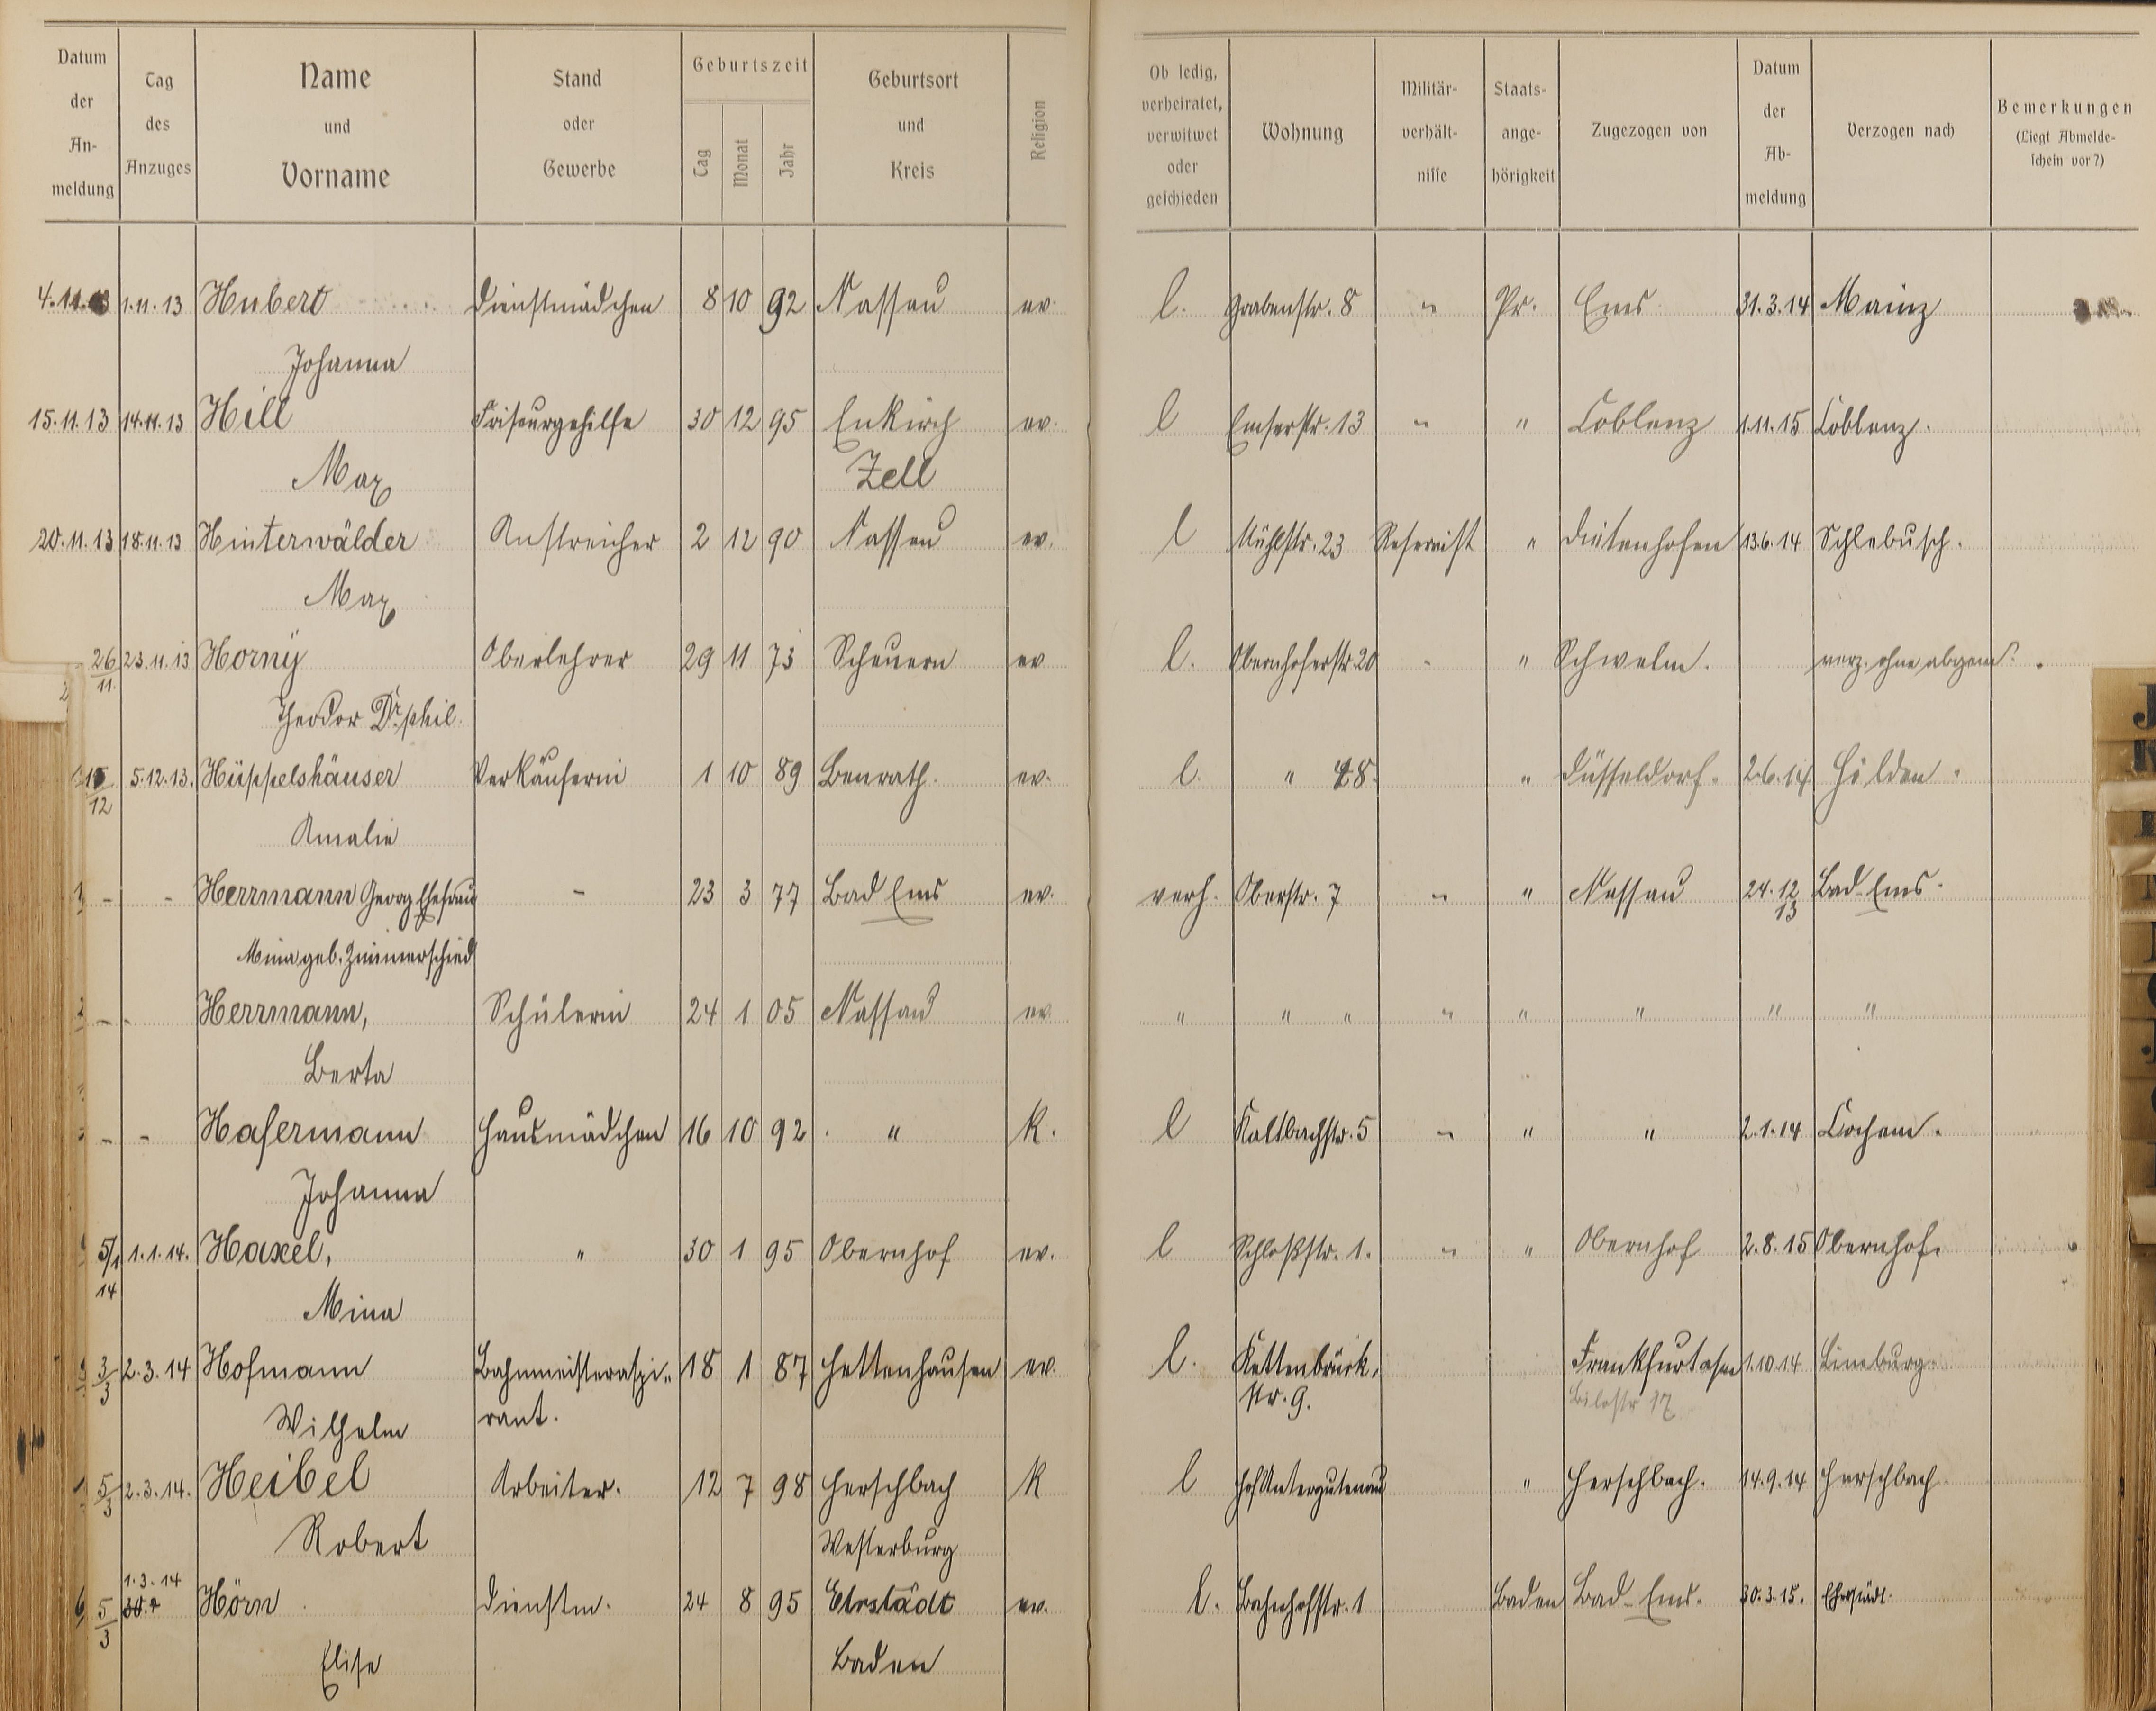 Datum der An- meldung
Tag des Anzuges
Name und Vorname
Stand oder Gewerbe
Geburtszeit
Tag Monat Jahr
Geburtsort und Kreis
Religion
Ob ledig, verheiratet, verwitwet oder geschieden
Wohnung
Militär- verhält- nisse
Staats- ange- hörigkeit
Zugezogen von
Datum der Ab- meldung
Verzogen nach
Bemerkungen (Liegt Abmelde- schein vor?)
4.11.13 1.11.13 Hubert Dienstmädchen 8 10 92 Nassau ev. l. Grabenstr. 8 " Pr. Ems 31.3.14 Mainz
Johanna
15.11.13 14.11.13 Hill Friseurgehilfe 30 12 95 Enkirch ev. l Emserstr. 13 " " Coblenz 1.11.15 Coblenz.
Max Zell
20.11.13 18.11.13 Hinterwälder Anstreicher 2 12 90 Nassau ev. l Mühlstr. 23 Reservist " Dietenhofen 13.6.14 Schlebusch.
Max
26/11. 23.11.13 Horny Oberlehrer 29 11 73 Scheuern ev l. Obernhoferstr. 20 - " Schwelm. verz. ohne abgem.
Theodor Dr. phil.
15/12 5.12.13. Hüppelshäuser Verkäuferin 1 10 89 Benrath. ev. l. " 48. " Düsseldorf. 2.6.14 Hilden.
Amalie
- - Herrmann Georg Ehefrau - 23 3 77 Bad Ems ev. verh. Oberstr. 7 " " Nassau 24.12 13 Bad-Ems.
Mina geb. Zimmerschied
- - Herrmann, Schülerin 24 1 05 Nassau ev. " " " " " " " "
Berta
- - Hafermann Hausmädchen 16 10 92 " K. l Kaltbachstr. 5 " " " 2.1.14 Cochem.
Johanna
5/1 14 1.1.14. Haxel, " 30 1 95 Obernhof ev. l Schloßstr. 1. " " Obernhof 2.8.15 Obernhof.
Mina
3/3 2.3.14 Hofmann Bahnmeisteraspi- 18 1 87 Hettenhausen ev. l. Kettenbrück, Frankfurt a/m 1.10.14 Limburg.
Wilhelm rant. str. 9.
5/3 2.3.14. Heibel Arbeiter. 12 7 98 Herschbach K l Hof Untergutenau " Herschbach. 14.9.14 Herschbach.
Robert Westerburg
1.3.14
5/3 Hörn Dienstm. 24 8 95 Ehrstädt ev. l. Bahnhofstr. 1 Baden Bad-Ems. 30.3.15. Ehrstädt.
Elise Baden